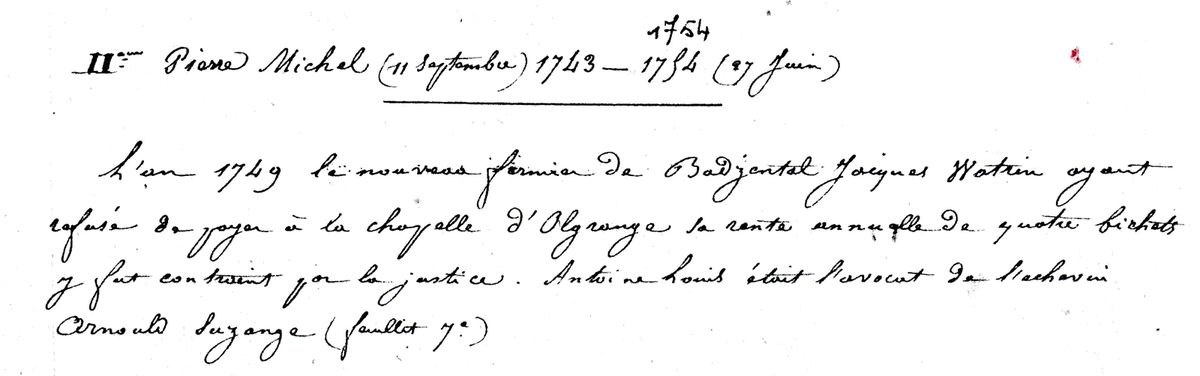 1754
IIème Pierre Michel (11 Septembre) 1743 — 1754 (27 Juin)
L'an 1749 le nouveau fermier de Badjental Jacques Watrin ayant
refusé de payer à la chapelle d'Olgrange sa rente annuelle de quatre bichets
y fut contraint par la justice. Antoine Louis était l'avocat de l'echevin
Arnould Suzange (feuillet 7e)